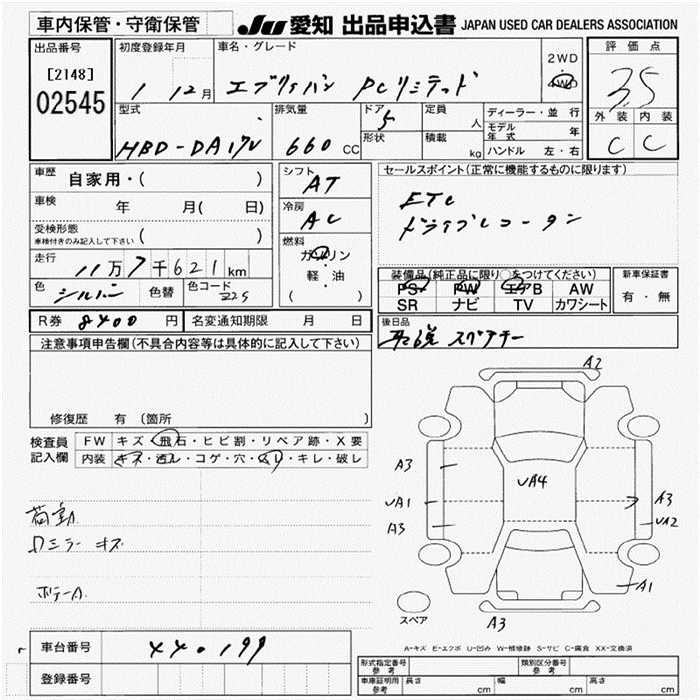 車内保管・守衛保管
JU 愛知 出品申込書 JAPAN USED CAR DEALERS ASSOCIATION
出品番号
[2148]
02545
初度登録年月
1 12月
車名・グレード
エブリィバン PCリミテッド
2WD
4WD
評価点
3.5
外装 内装
C C
型式
HBD-DA17V
排気量
660 CC
ドア
5
形状
定員
人
積載
kg
ディーラー・並行
モデル年式 年
ハンドル 左・右
車歴
自家用・( )
車検
年 月( 日)
受検形態
車検付きのみ記入して下さい ( )
走行
11万7千621km
色
シルバー
色替
色コード
Z2S
シフト
AT
冷房
AC
燃料
ガソリン
軽・油
( )
セールスポイント(正常に機能するものに限ります)
ETC
ドライブレコーダー
装備品(純正品に限り○をつけてください)
PS PW エアB AW
SR ナビ TV カワシート
新車保証書
有・無
R券 8400 円
名変通知期限 月 日
後日品
取説 スペアキー
注意事項申告欄(不具合内容等は具体的に記入して下さい)
修復歴 有(箇所
検査員記入欄
FW キズ・飛石・ヒビ割・リペア跡・X要
内装 キズ・汚レ・コゲ・穴・スレ・キレ・破レ
荷室
ミラー キズ
A2
A3
UA4
UA1
A3
A3
UA2
A1
A3
スペア
A-キズ E-エクボ U-凹み W-補修跡 S-サビ C-腐食 XX-交換済
車台番号
440199
登録番号
形式指定番号 参考
類別区分番号 参考
車庫証明用 参考
長さ cm
幅 cm
高さ cm